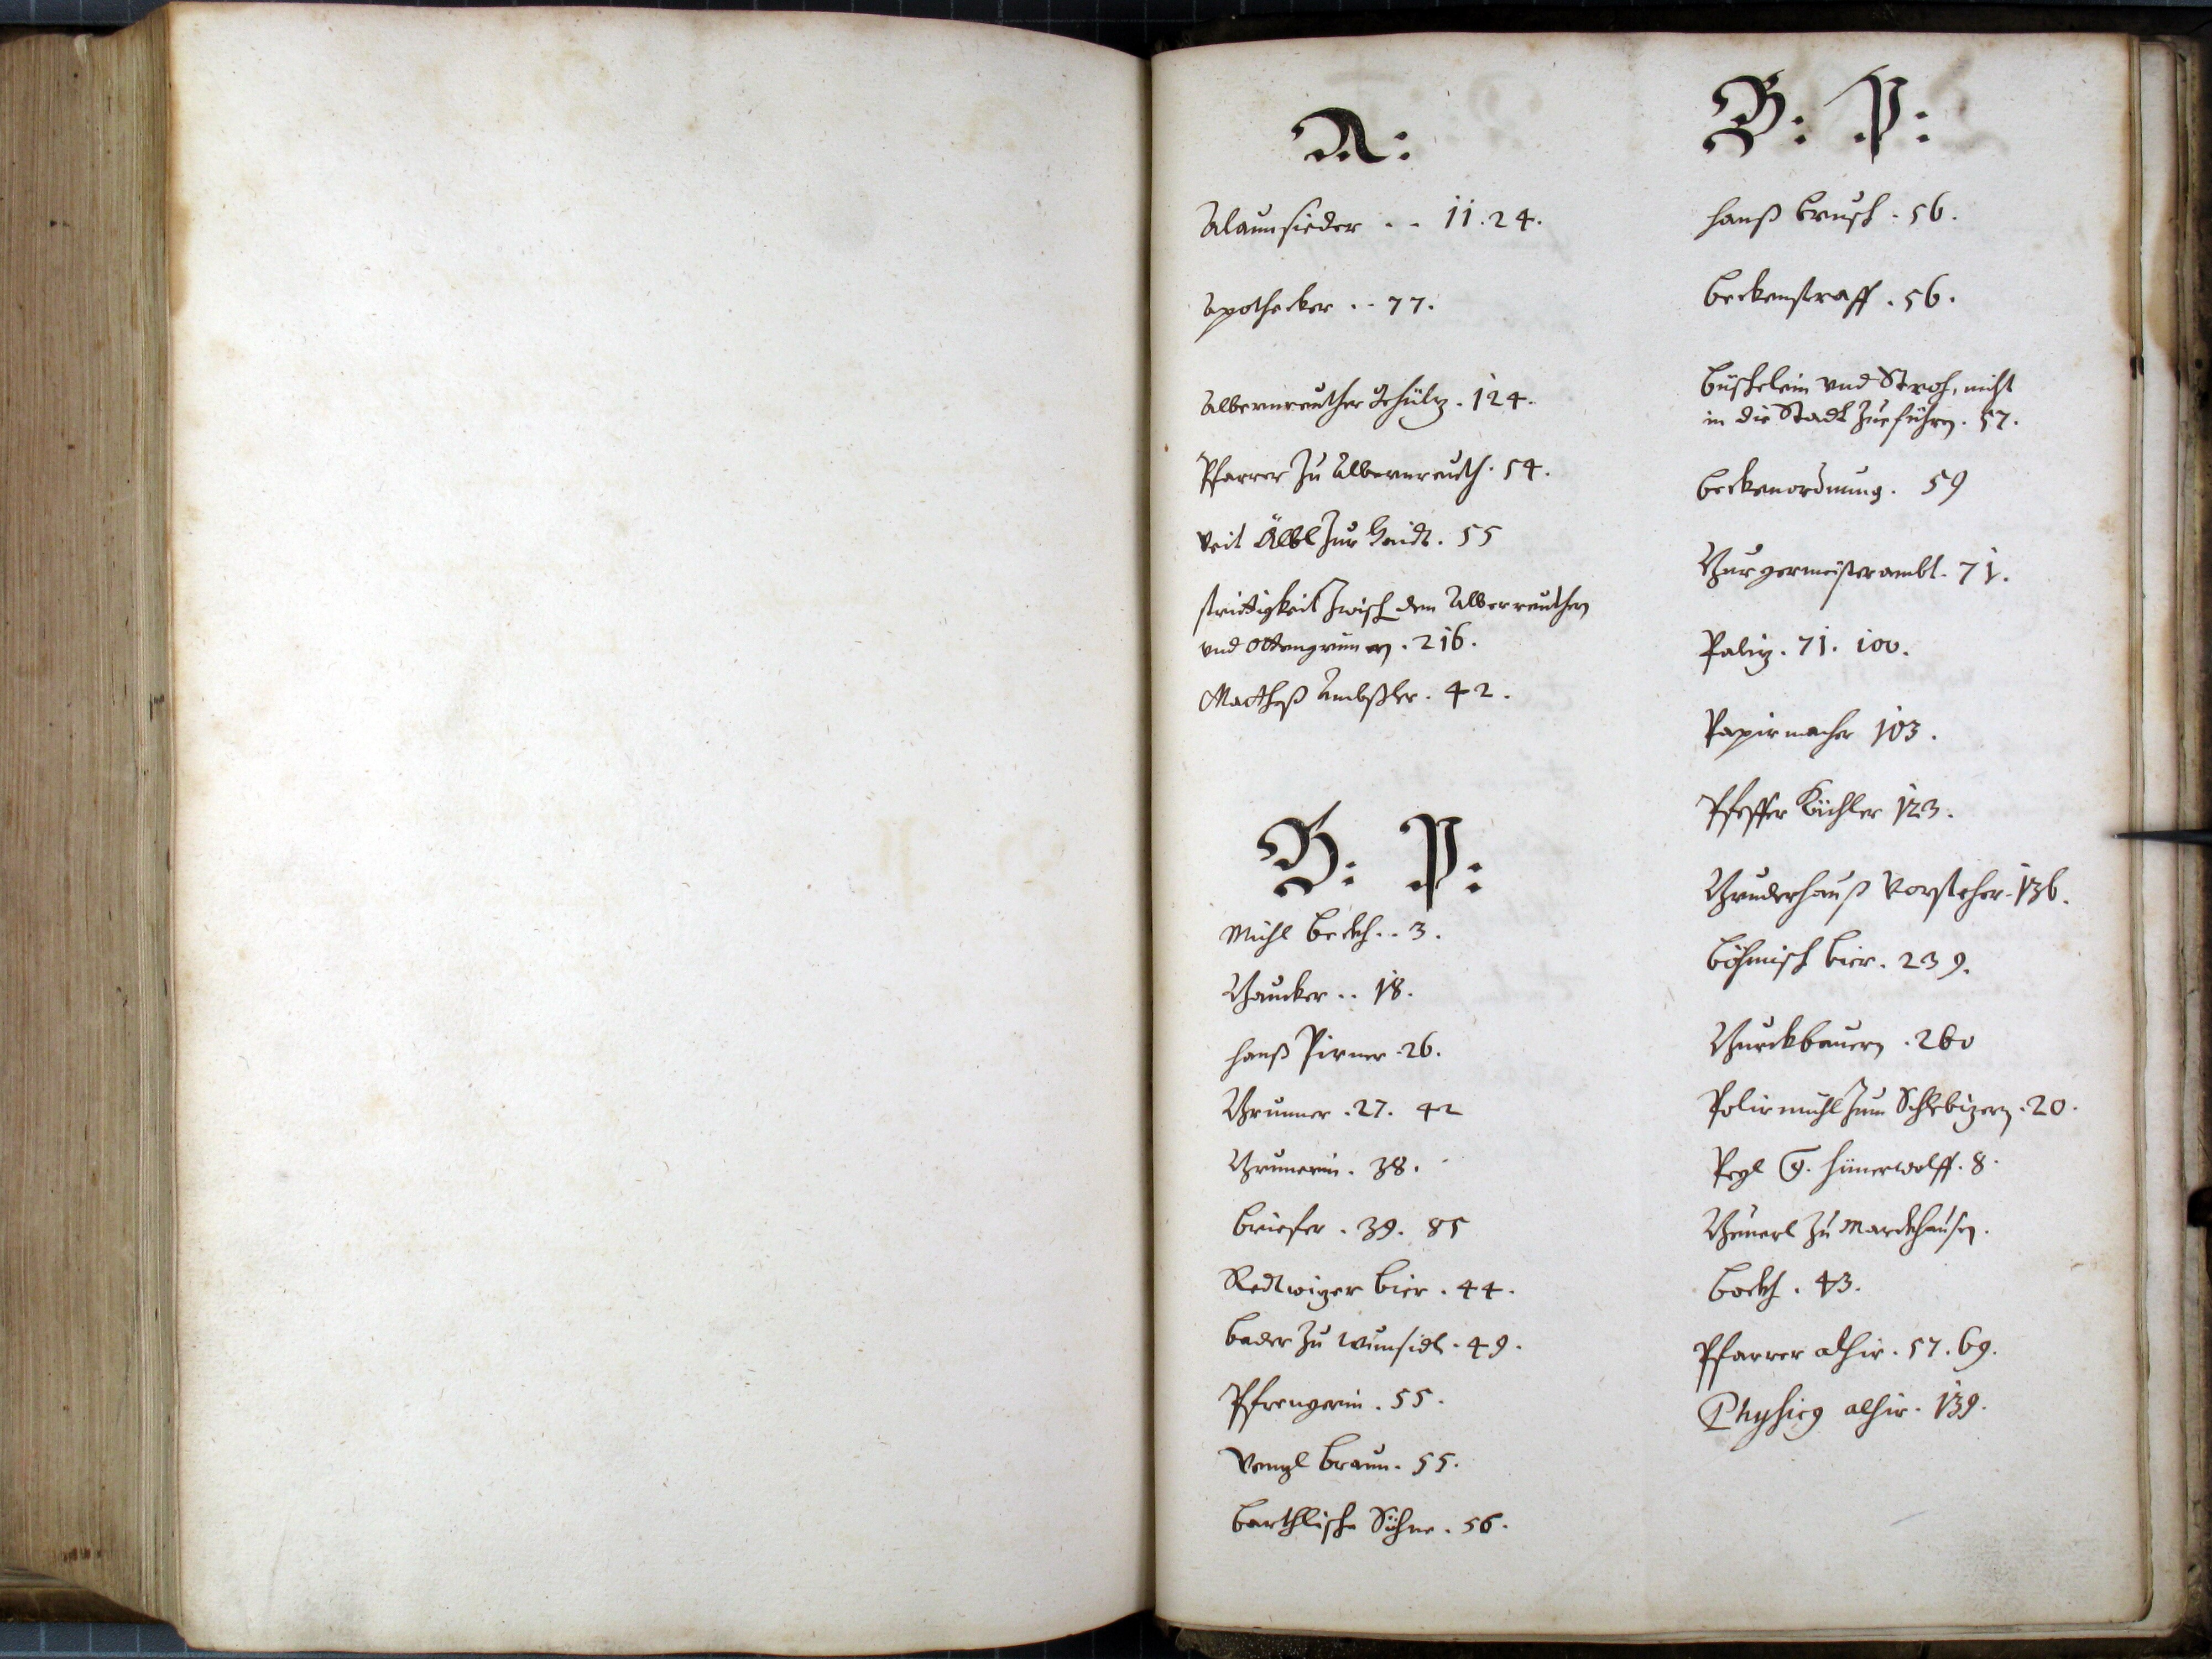 A:
Alaunsieder . . 11. 24.
Apothecker . . 77.
Albernreuther Schüz. 124.
Pfarrer zu Albernreuth. 54.
Veit Älbl zur Haidt. 55
strittigkeit zwisch den Alberreuthern
und Ottengrünern. 216.
Mattheß . 42.
B: P:
Mühl beckh. . 3.
Baucker . . 18.
Hanß Pirner . 26.
Brunner . 27. 42
Brunerin. 38.
briefer . 39. 85
Redtwizer bier . 44.
bader zu Wunsidl. 49.
Pfrengerin. 55.
Wenzl braun. 55.
barthlische Söhne. 56.
B: P:
Hanß brusch . 56.
beckenstraff . 56.
büschelein und Stroh, nicht
in die Stadt zuführen. 57.
beckenordnung. 59
Burgermeisterambt. 71.
Paliz. 71. 100.
Papirmacher 103.
Pfeffer Küchler 123.
Bruderhauß Vorsteher. 136.
böhmisch bier. 239.
Burckbauern . 260
Polirmühl zum Schlebizern. 20.
Pezl G. Hünerwolff. 8.
Beuerl zu Markhausen.
bockh . 43.
Pfarrer alhir. 57. 69.
Physicus alhir. 139.